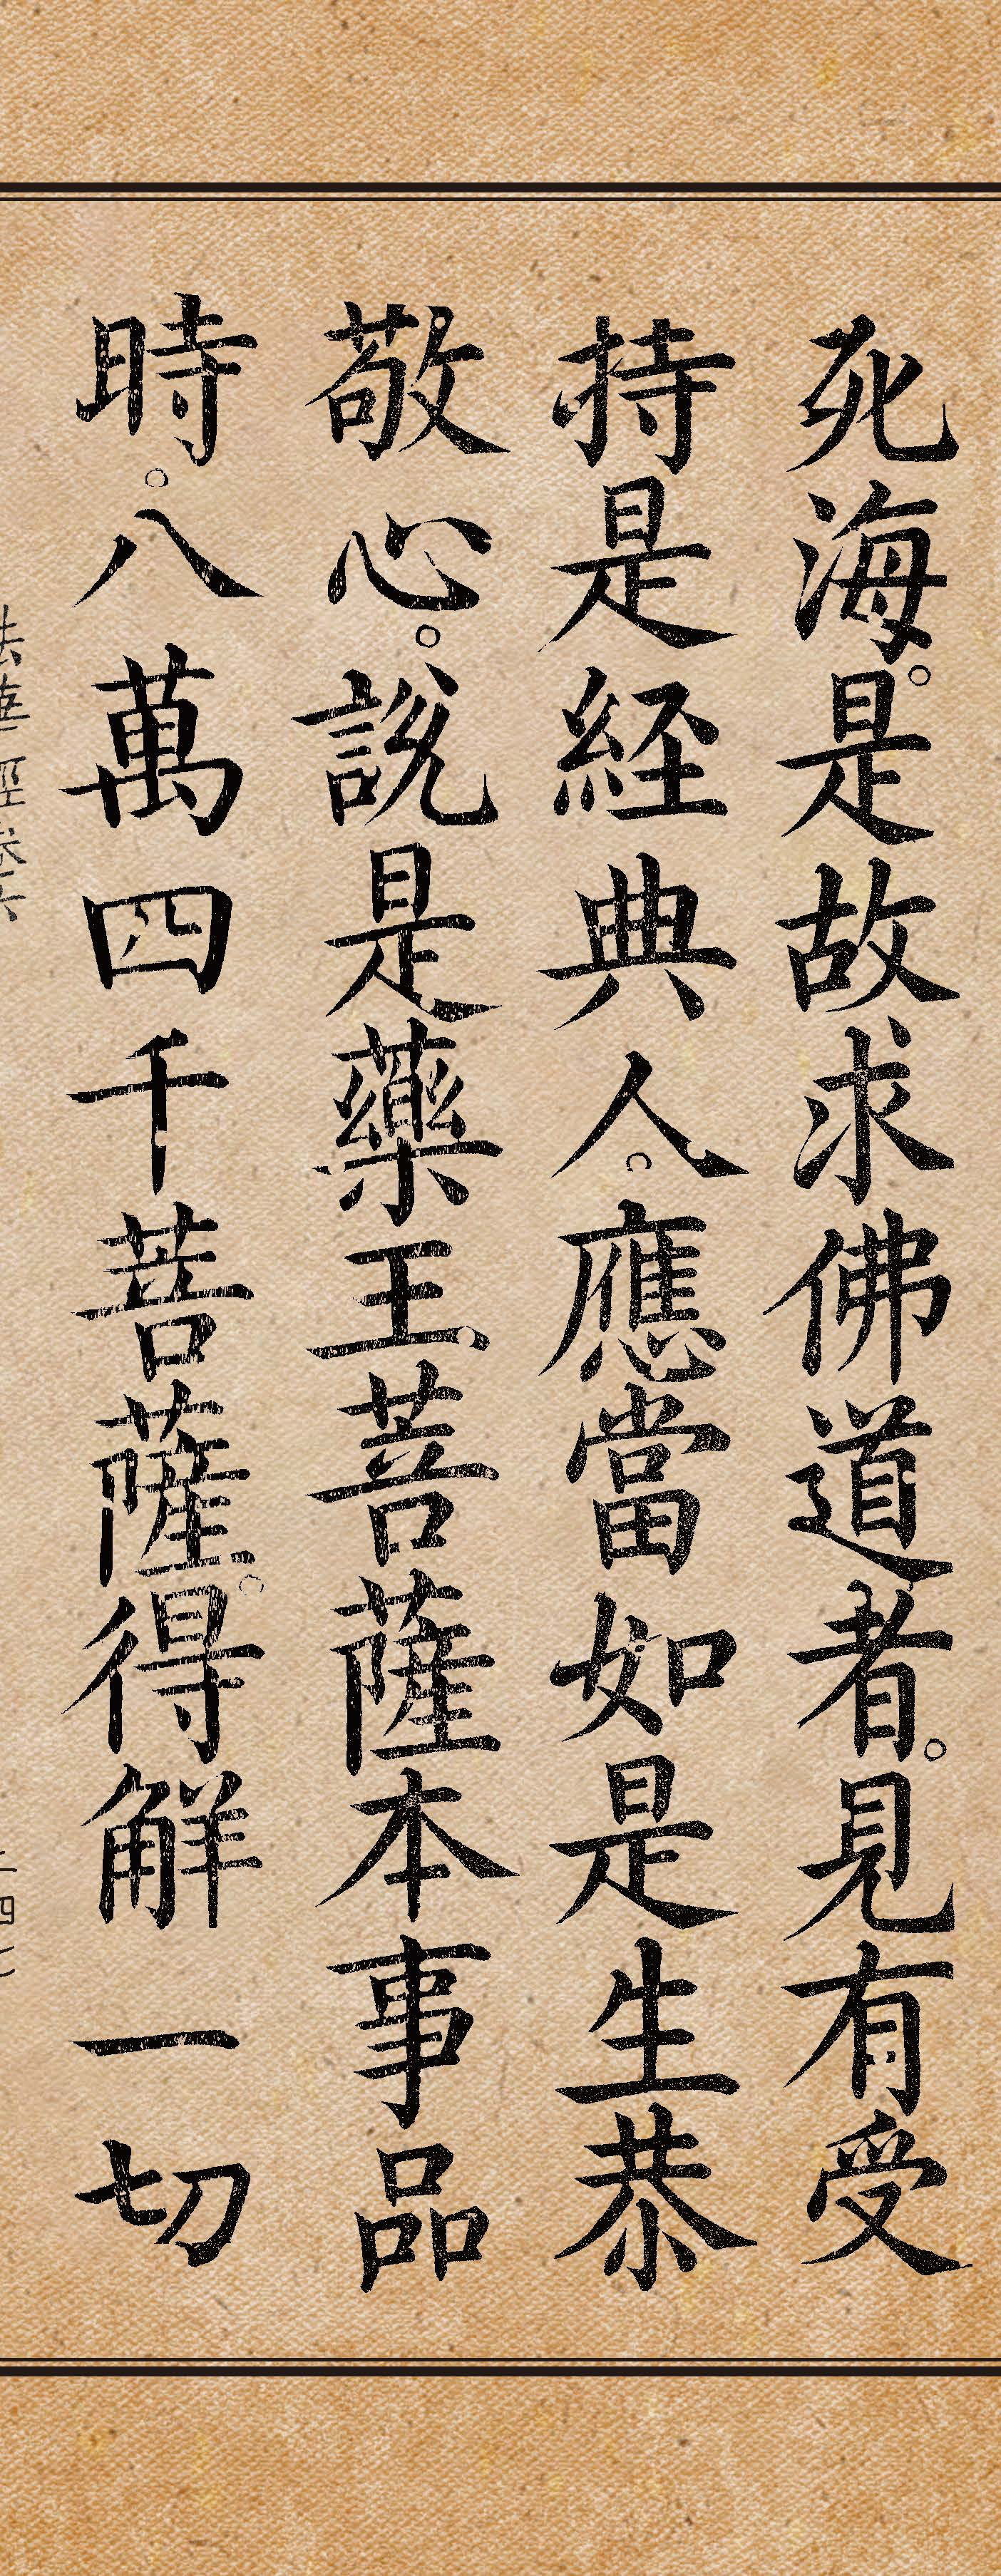 死海。是故求佛道者。見有受
持是經典人。應當如是生恭
敬心。說是藥王菩薩本事品
時。八萬四千菩薩。得解一切
法華經卷六
二四七